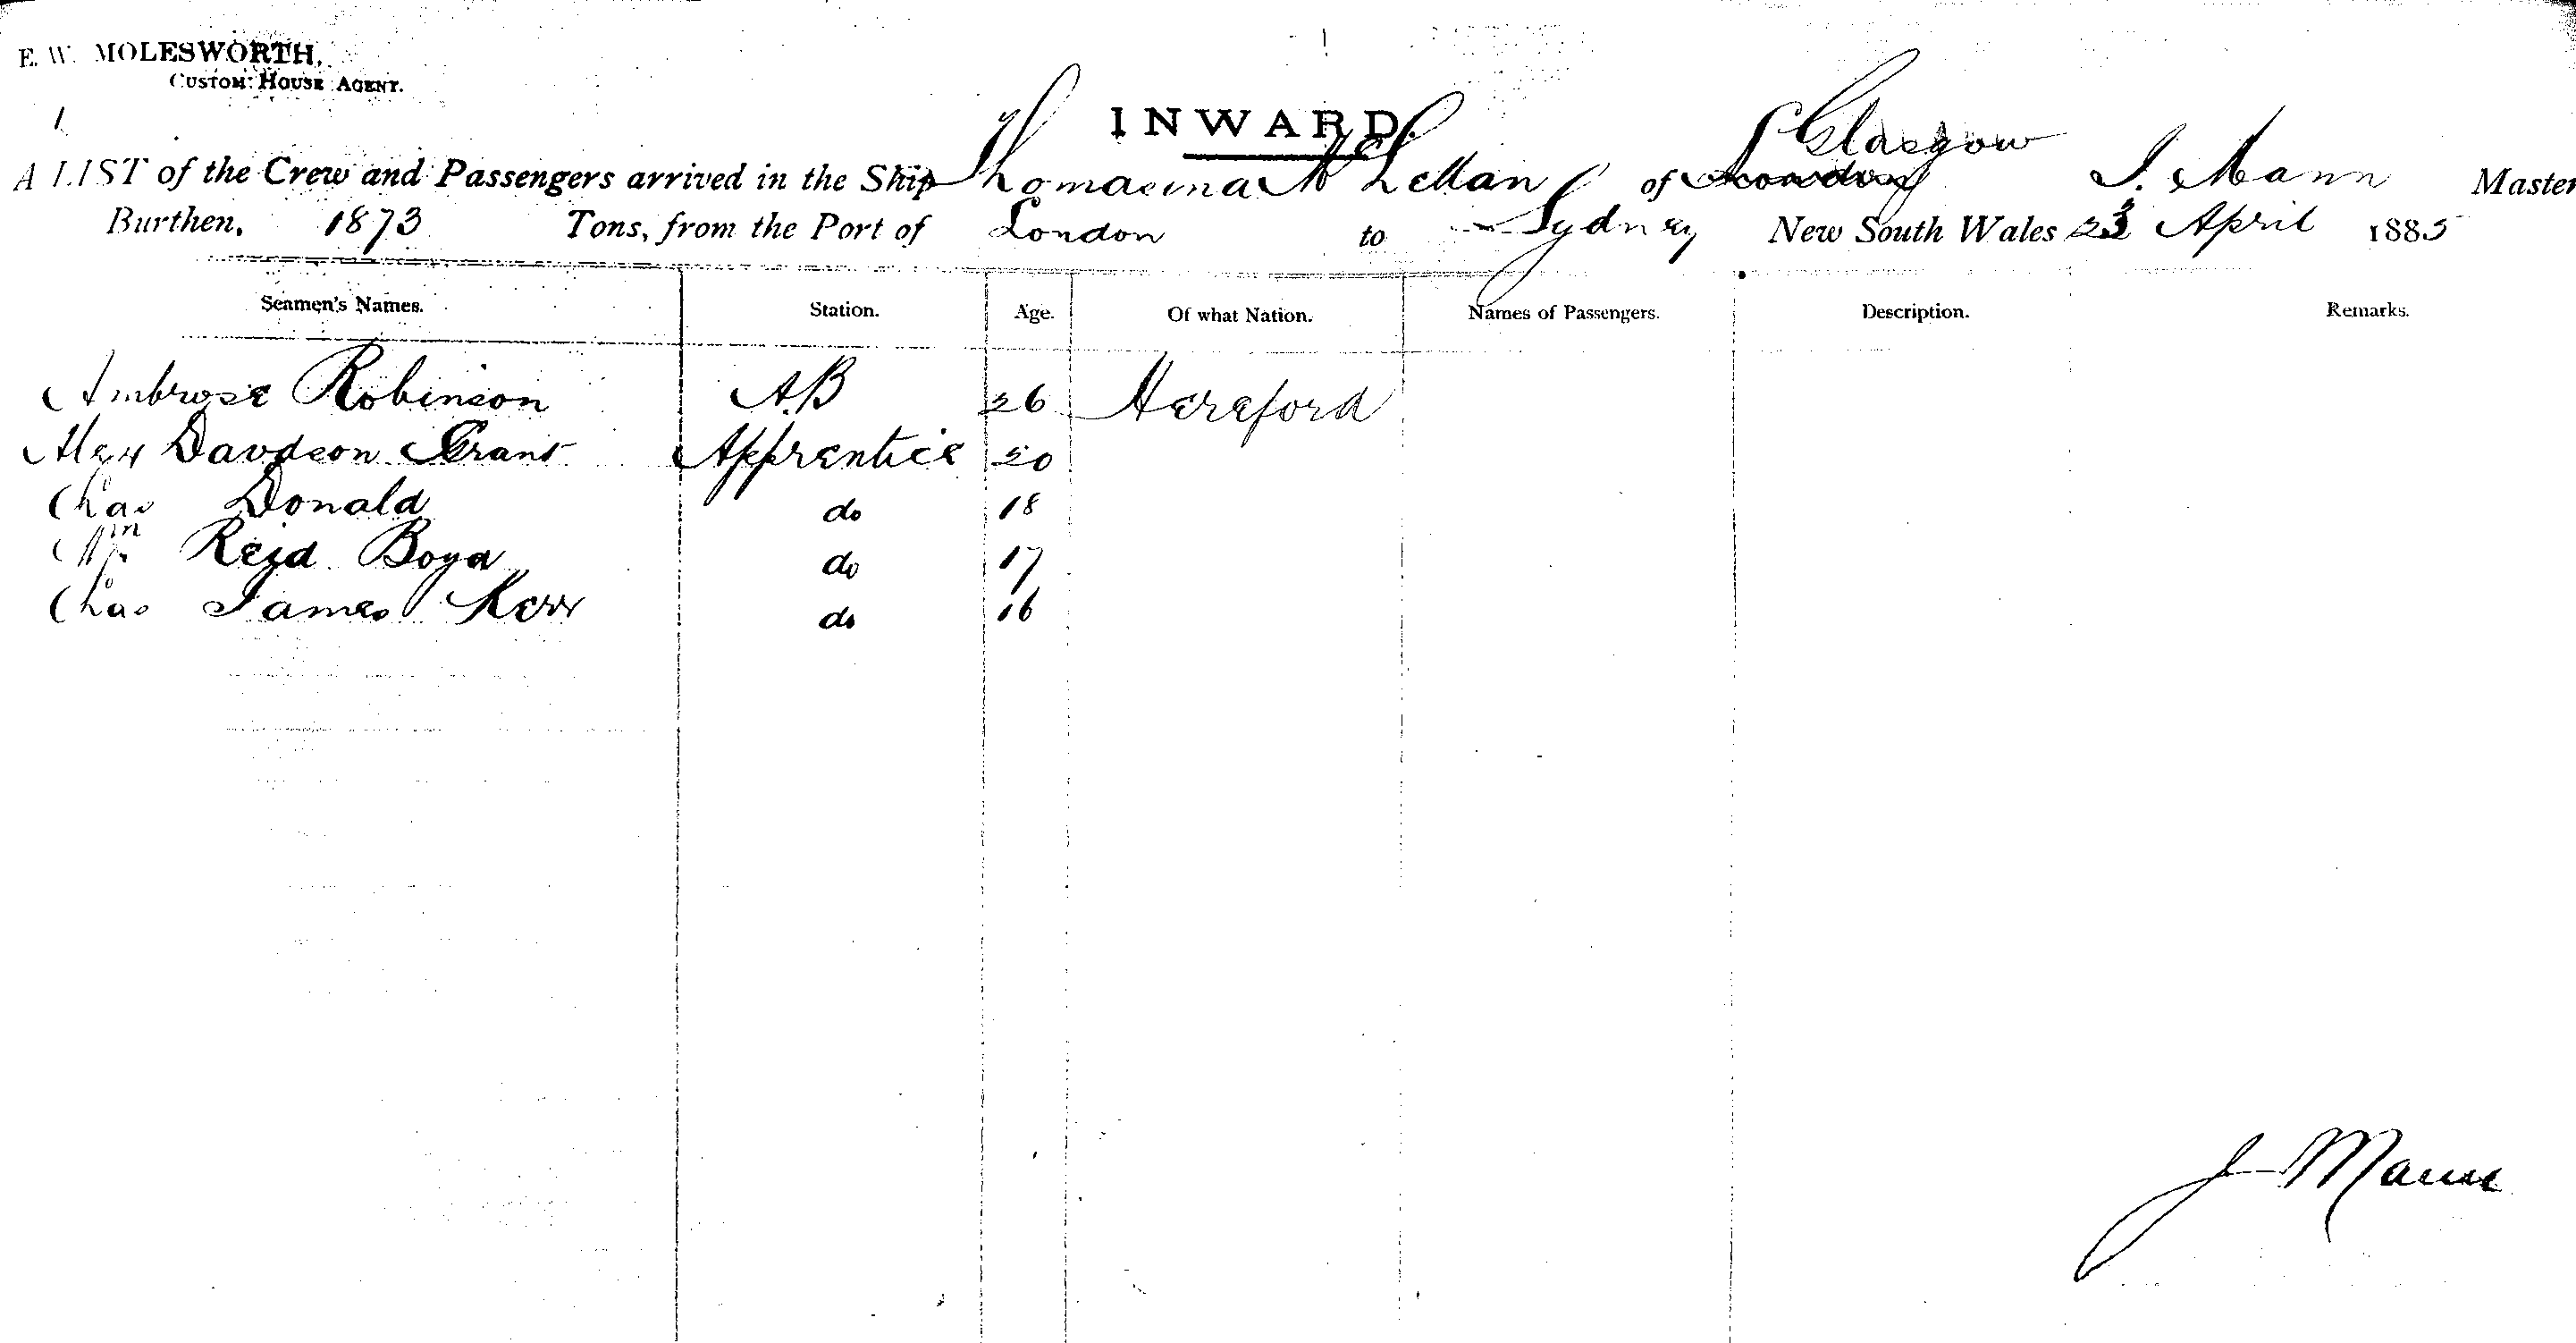 E. W. MOLESWORTH,
CUSTOM HOUSE AGENT.
INWARD.
Glasgow
A LIST of the Crew and Passengers arrived in the Ship Thomasina McLellan of London J. Mann Master
Burthen, 1873 Tons, from the Port of London to Sydney New South Wales 23 April 1885
Seamen's Names. Station. Age. Of what Nation. Names of Passengers. Description. Remarks.
Ambrose Robinson A.B 26 Hereford
Alex Davdson Grant Apprentice 20
Chas Donald do 18
Wm Reid Boyd do 17
Chas James Kerr do 16
J Mann